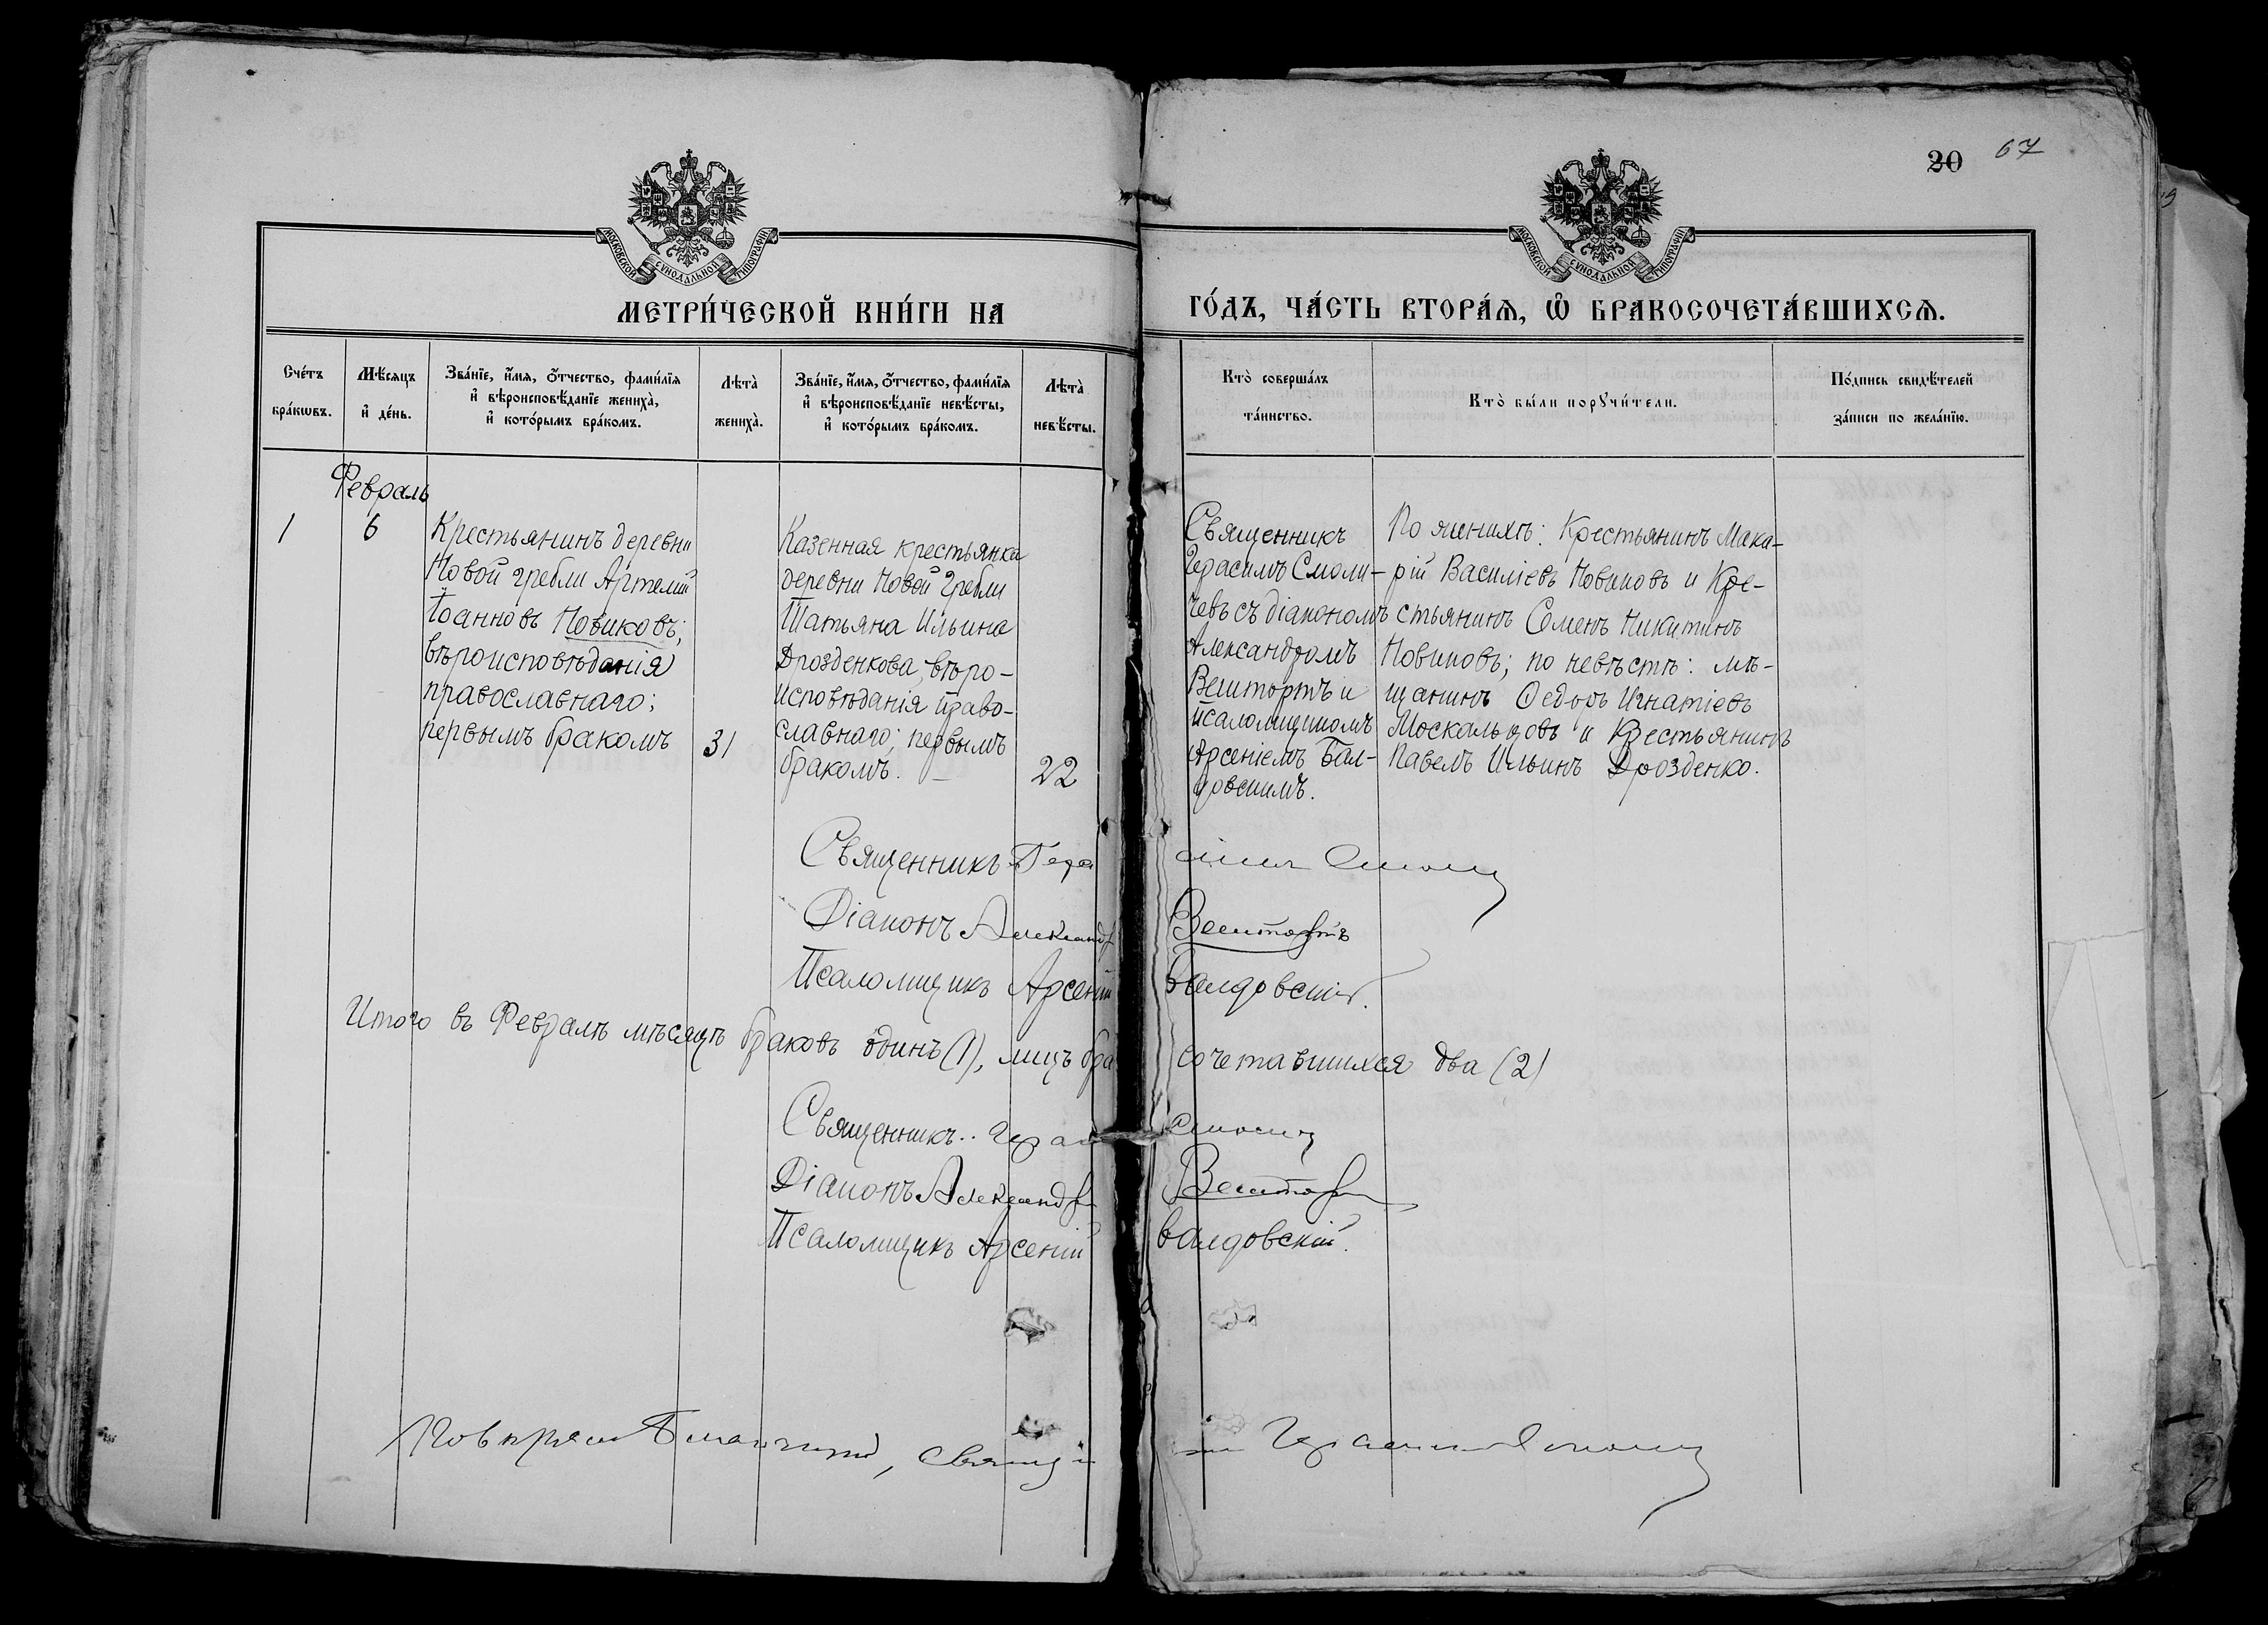 20 67
МОСКОВСКОЙ СѴНОДАЛЬНОЙ ТИПОГРАФІИ
МОСКОВСКОЙ СѴНОДАЛЬНОЙ ТИПОГРАФІИ
МЕТРИ́ЧЕСКОЙ КНИ́ГИ НА ГО́ДЪ, ЧА́СТЬ ВТОРА́Ѧ, Ѽ БРАКОСОЧЕТА́ВШИХСѦ.
Сче́тъ бра́кѡвъ.
Мѣ́сяцъ и҆ де́нь.
Зва́нїе, и҆́мя, о҆́тчество, фами́лїя
и҆ вѣроисповѣ́данїе жениха̀,
и҆ кото́рымъ бра́комъ.
Лѣта̀ жениха̀.
Зва́нїе, и҆́мя, о҆́тчество, фами́лїя
и҆ вѣроисповѣ́данїе невѣ́сты,
и҆ кото́рымъ бра́комъ.
Лѣта̀ невѣ́сты.
Кто̀ соверша́лъ
та́инство.
Кто̀ бы́ли порꙋчи́тели.
По́дпись свидѣ́телей
за́писи по жела́нїю.
Февраль
1
6
Крестьянинъ деревни
Новой гребли Артемій
Іоанновъ Новиковъ;
вѣроисповѣданія
православнаго;
первымъ бракомъ
31
Казенная крестьянка
деревни Новой Гребли
Татьяна Ильина
Дрозденкова, вѣро-
исповѣданія право-
славнаго; первымъ
бракомъ.
22
Священникъ
Герасимъ Смоли-
чевъ съ діакономъ
Александромъ
Вештортъ и
псаломщикомъ
Арсеніемъ Бал-
довскимъ.
По женихѣ: Крестьянинъ Мака-
рій Василіевъ Новиковъ и Кре-
стьянинъ Семенъ Никитинъ
Новиковъ; по невѣстѣ: мѣ-
щанинъ Ѳедоръ Игнатіевъ
Москальцовъ и Крестьянинъ
Павелъ Ильинъ Дрозденко.
Священникъ Гера
Діаконъ Александр Вештортъ
Псаломщикъ Арсеній Балдовскій.
Итого въ Февралѣ мѣсяцѣ браковъ одинъ (1), лицъ бра сочетавшихся два (2)
Священникъ
Діаконъ Александр Вешторт
Псаломщикъ Арсеній Балдовскій.